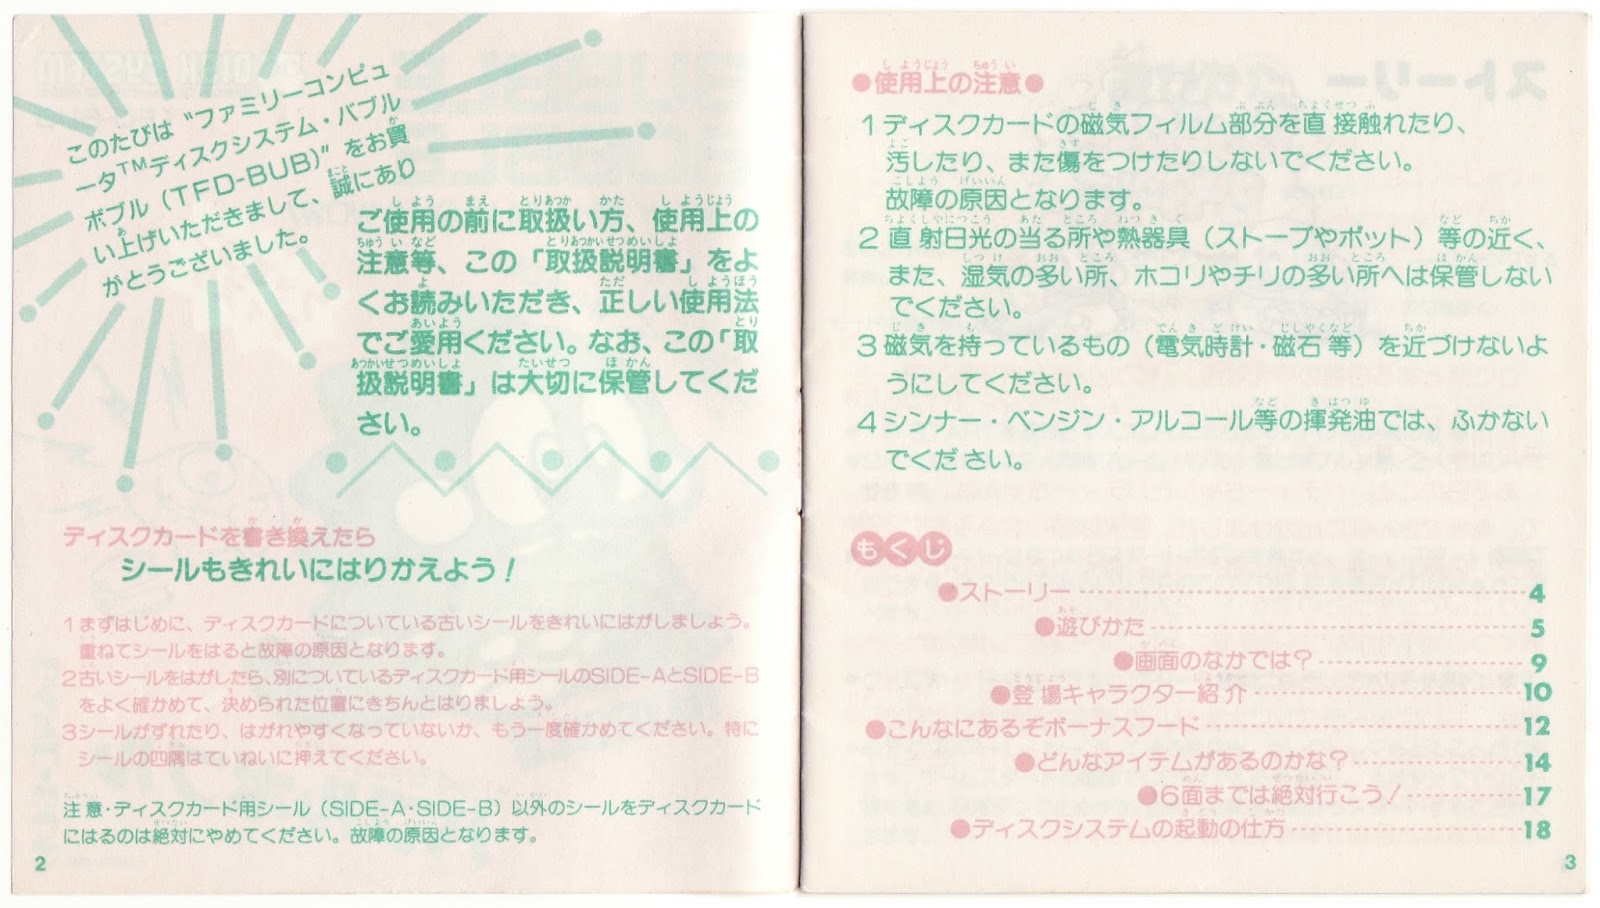 このたびは“ファミリーコンピュ
ータTMディスクシステム・バブル
ボブル(TFD-BUB)”をお買
い上げいただきまして、誠にあり
がとうございました。
ご使用の前に取扱い方、使用上の
注意等、この「取扱説明書」をよ
くお読みいただき、正しい使用法
でご愛用ください。なお、この「取
扱説明書」は大切に保管してくだ
さい。
ディスクカードを書き換えたら
シールもきれいにはりかえよう!
1まずはじめに、ディスクカードについている古いシールをきれいにはがしましょう。
重ねてシールをはると故障の原因となります。
2古いシールをはがしたら、別についているディスクカード用シールのSIDE-AとSIDE-B
をよく確かめて、決められた位置にきちんとはりましょう。
3シールがずれたり、はがれやすくなっていないか、もう一度確かめてください。特に
シールの四隅はていねいに押えてください。
注意・ディスクカード用シール(SIDE-A・SIDE-B)以外のシールをディスクカード
にはるのは絶対にやめてください。故障の原因となります。
2
●使用上の注意●
1ディスクカードの磁気フィルム部分を直接触れたり、
汚したり、また傷をつけたりしないでください。
故障の原因となります。
2直射日光の当る所や熱器具(ストーブやポット)等の近く、
また、湿気の多い所、ホコリやチリの多い所へは保管しない
でください。
3磁気を持っているもの(電気時計・磁石等)を近づけないよ
うにしてください。
4シンナー・ベンジン・アルコール等の揮発油では、ふかない
でください。
もくじ
●ストーリー 4
●遊びかた 5
●画面のなかでは? 9
●登場キャラクター紹介 10
●こんなにあるぞボーナスフード 12
●どんなアイテムがあるのかな? 14
●6面までは絶対行こう! 17
●ディスクシステムの起動の仕方 18
3